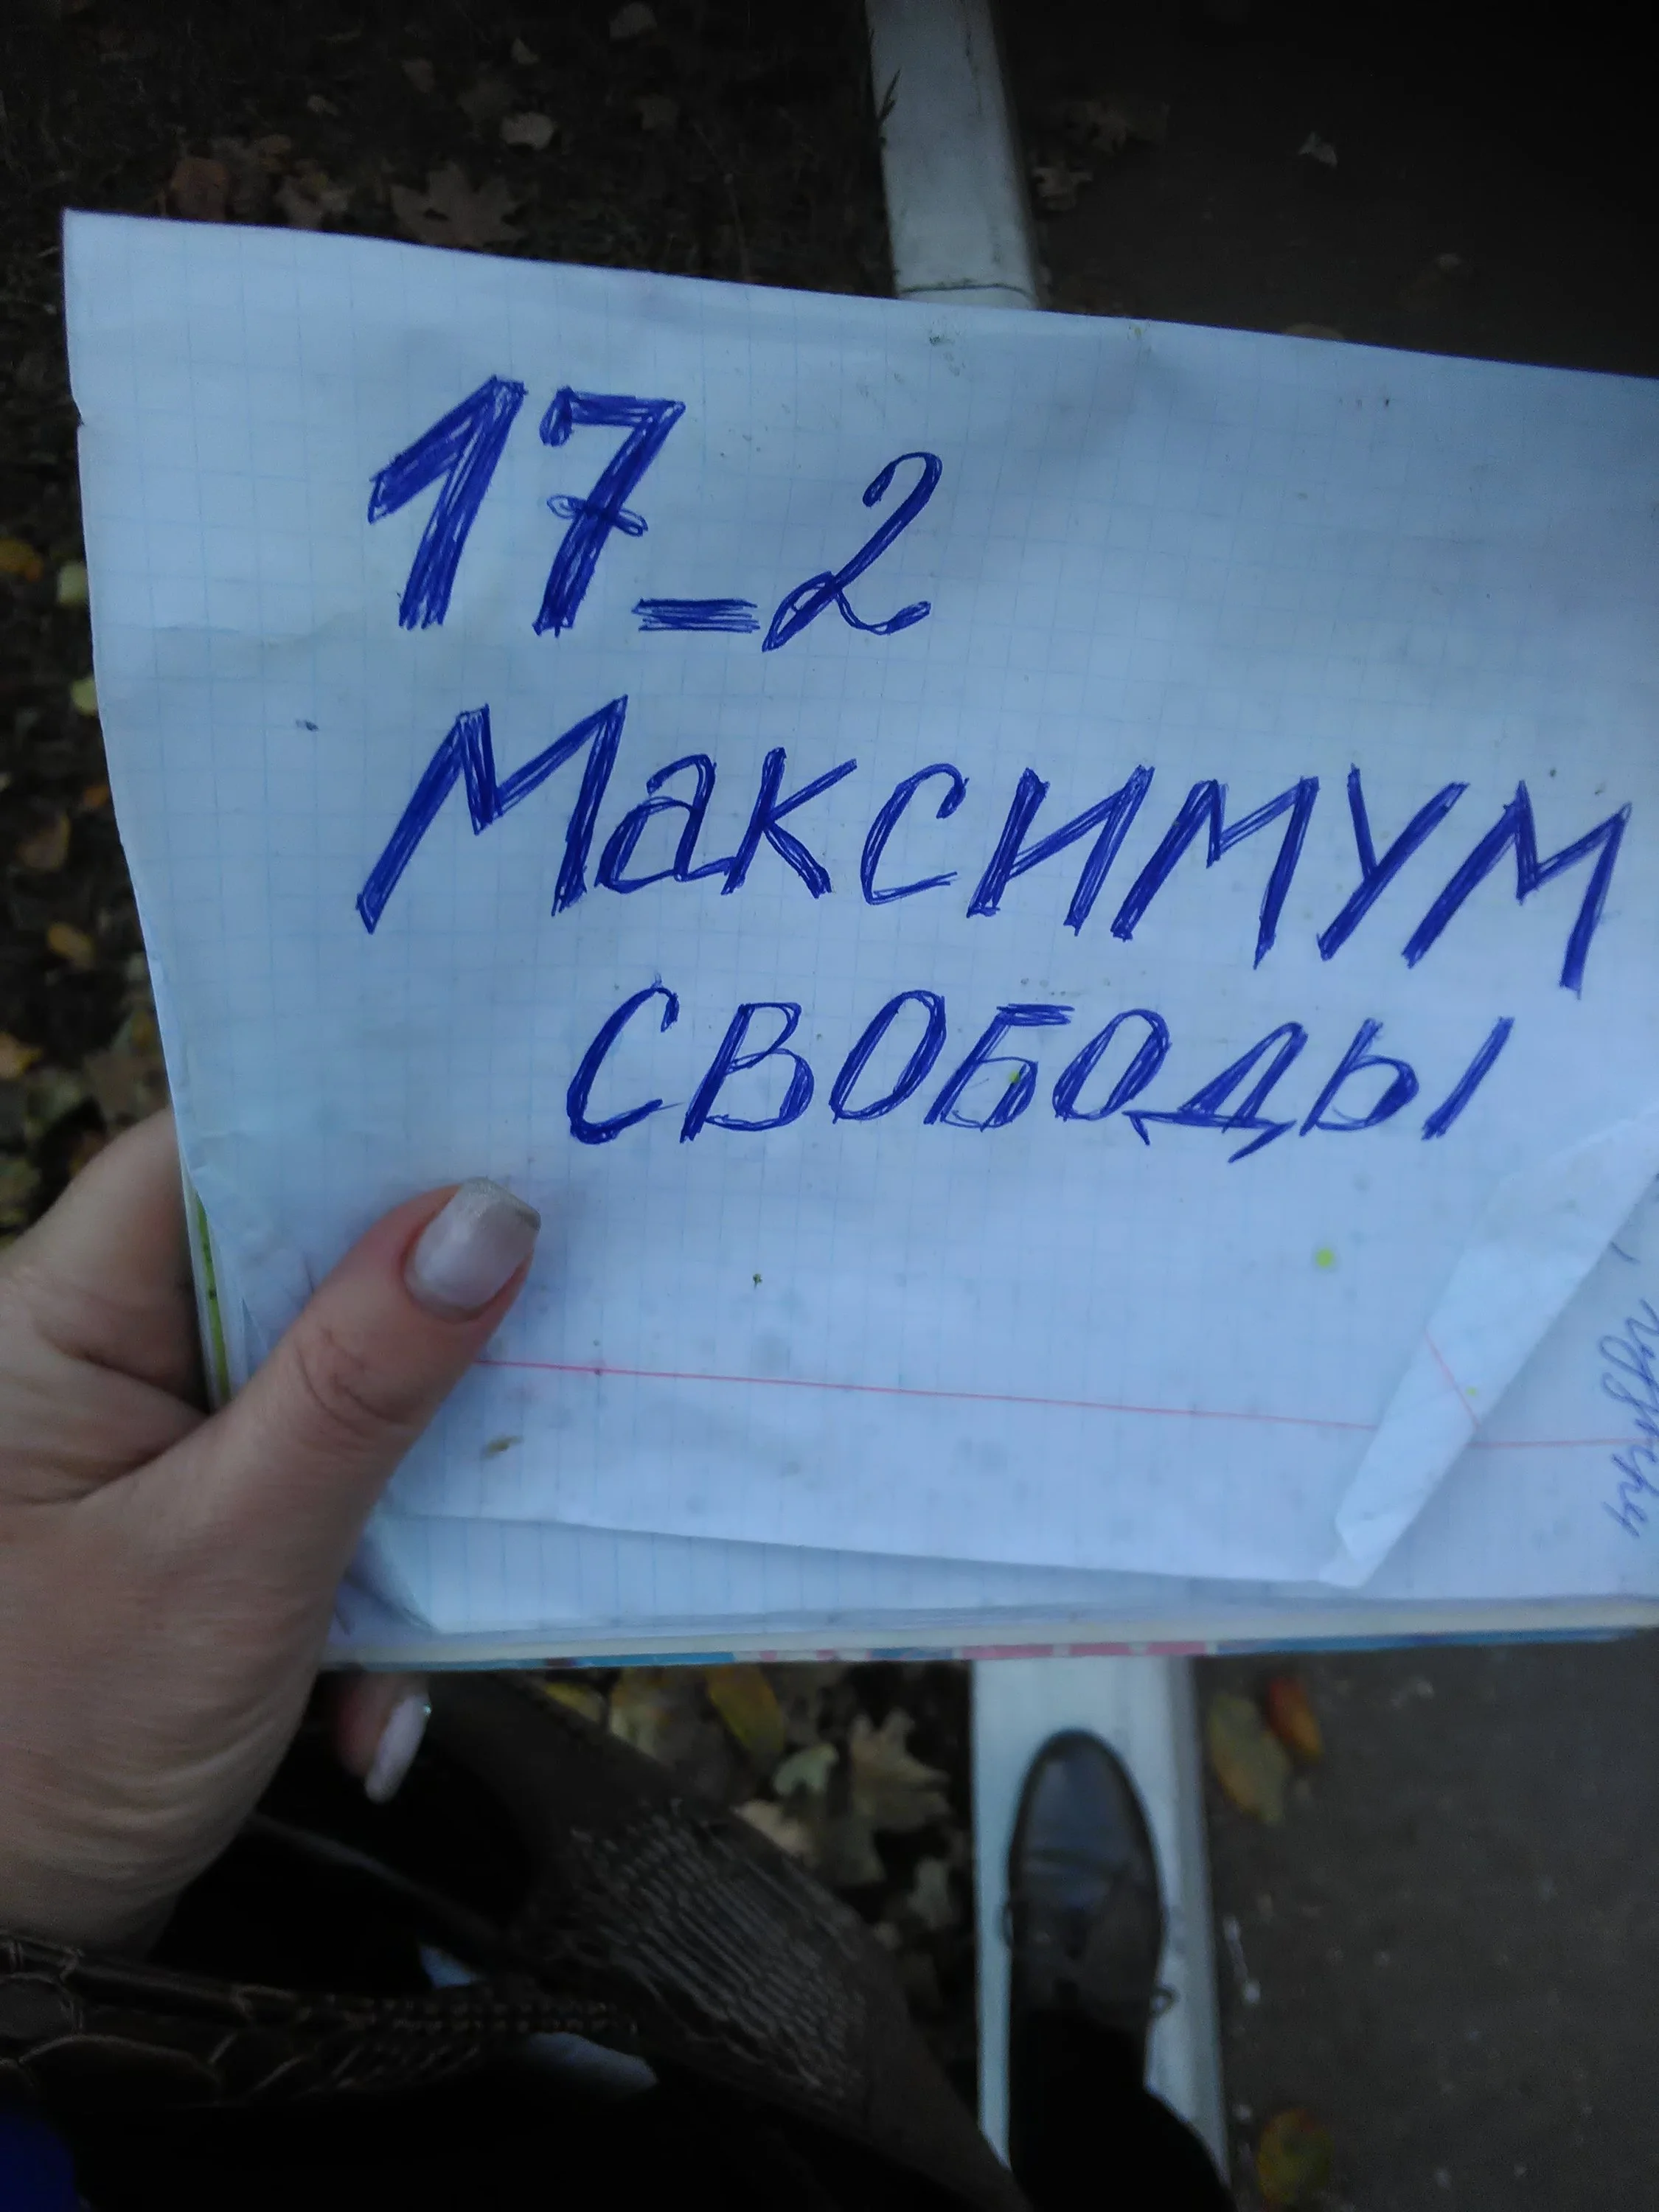 17_2
Максимум
свободы